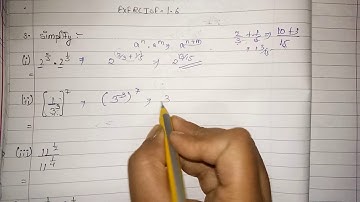 EXERCISE - 1.6
3. Simplify :-
aⁿ . aᵐ , aⁿ⁺ᵐ
2/3 + 1/5 ⇒ 10 + 3 / 15
(i) 2^2/3 . 2^1/5 , 2^2/3+1/5 , 2^13/15
(ii) [1/3³]⁷ , (3⁻³)⁷ , 3
(iii) 11^1/2 / 11^1/4